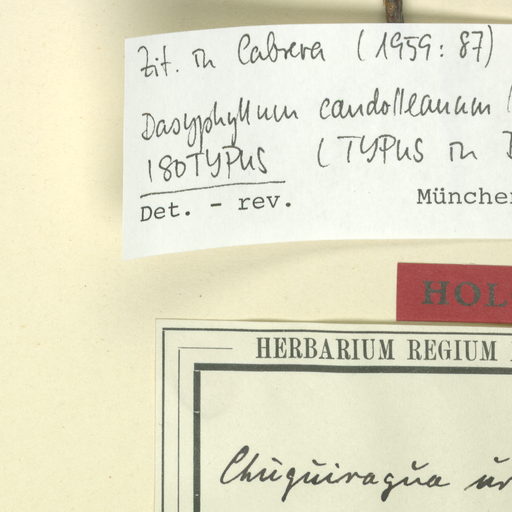 Zit. in Cabrera (1959: 87)
Dasyphyllum candolleanum (
ISOTYPUS (TYPUS in
Det. - rev. München
HOL
HERBARIUM REGIUM
Chuquiragua